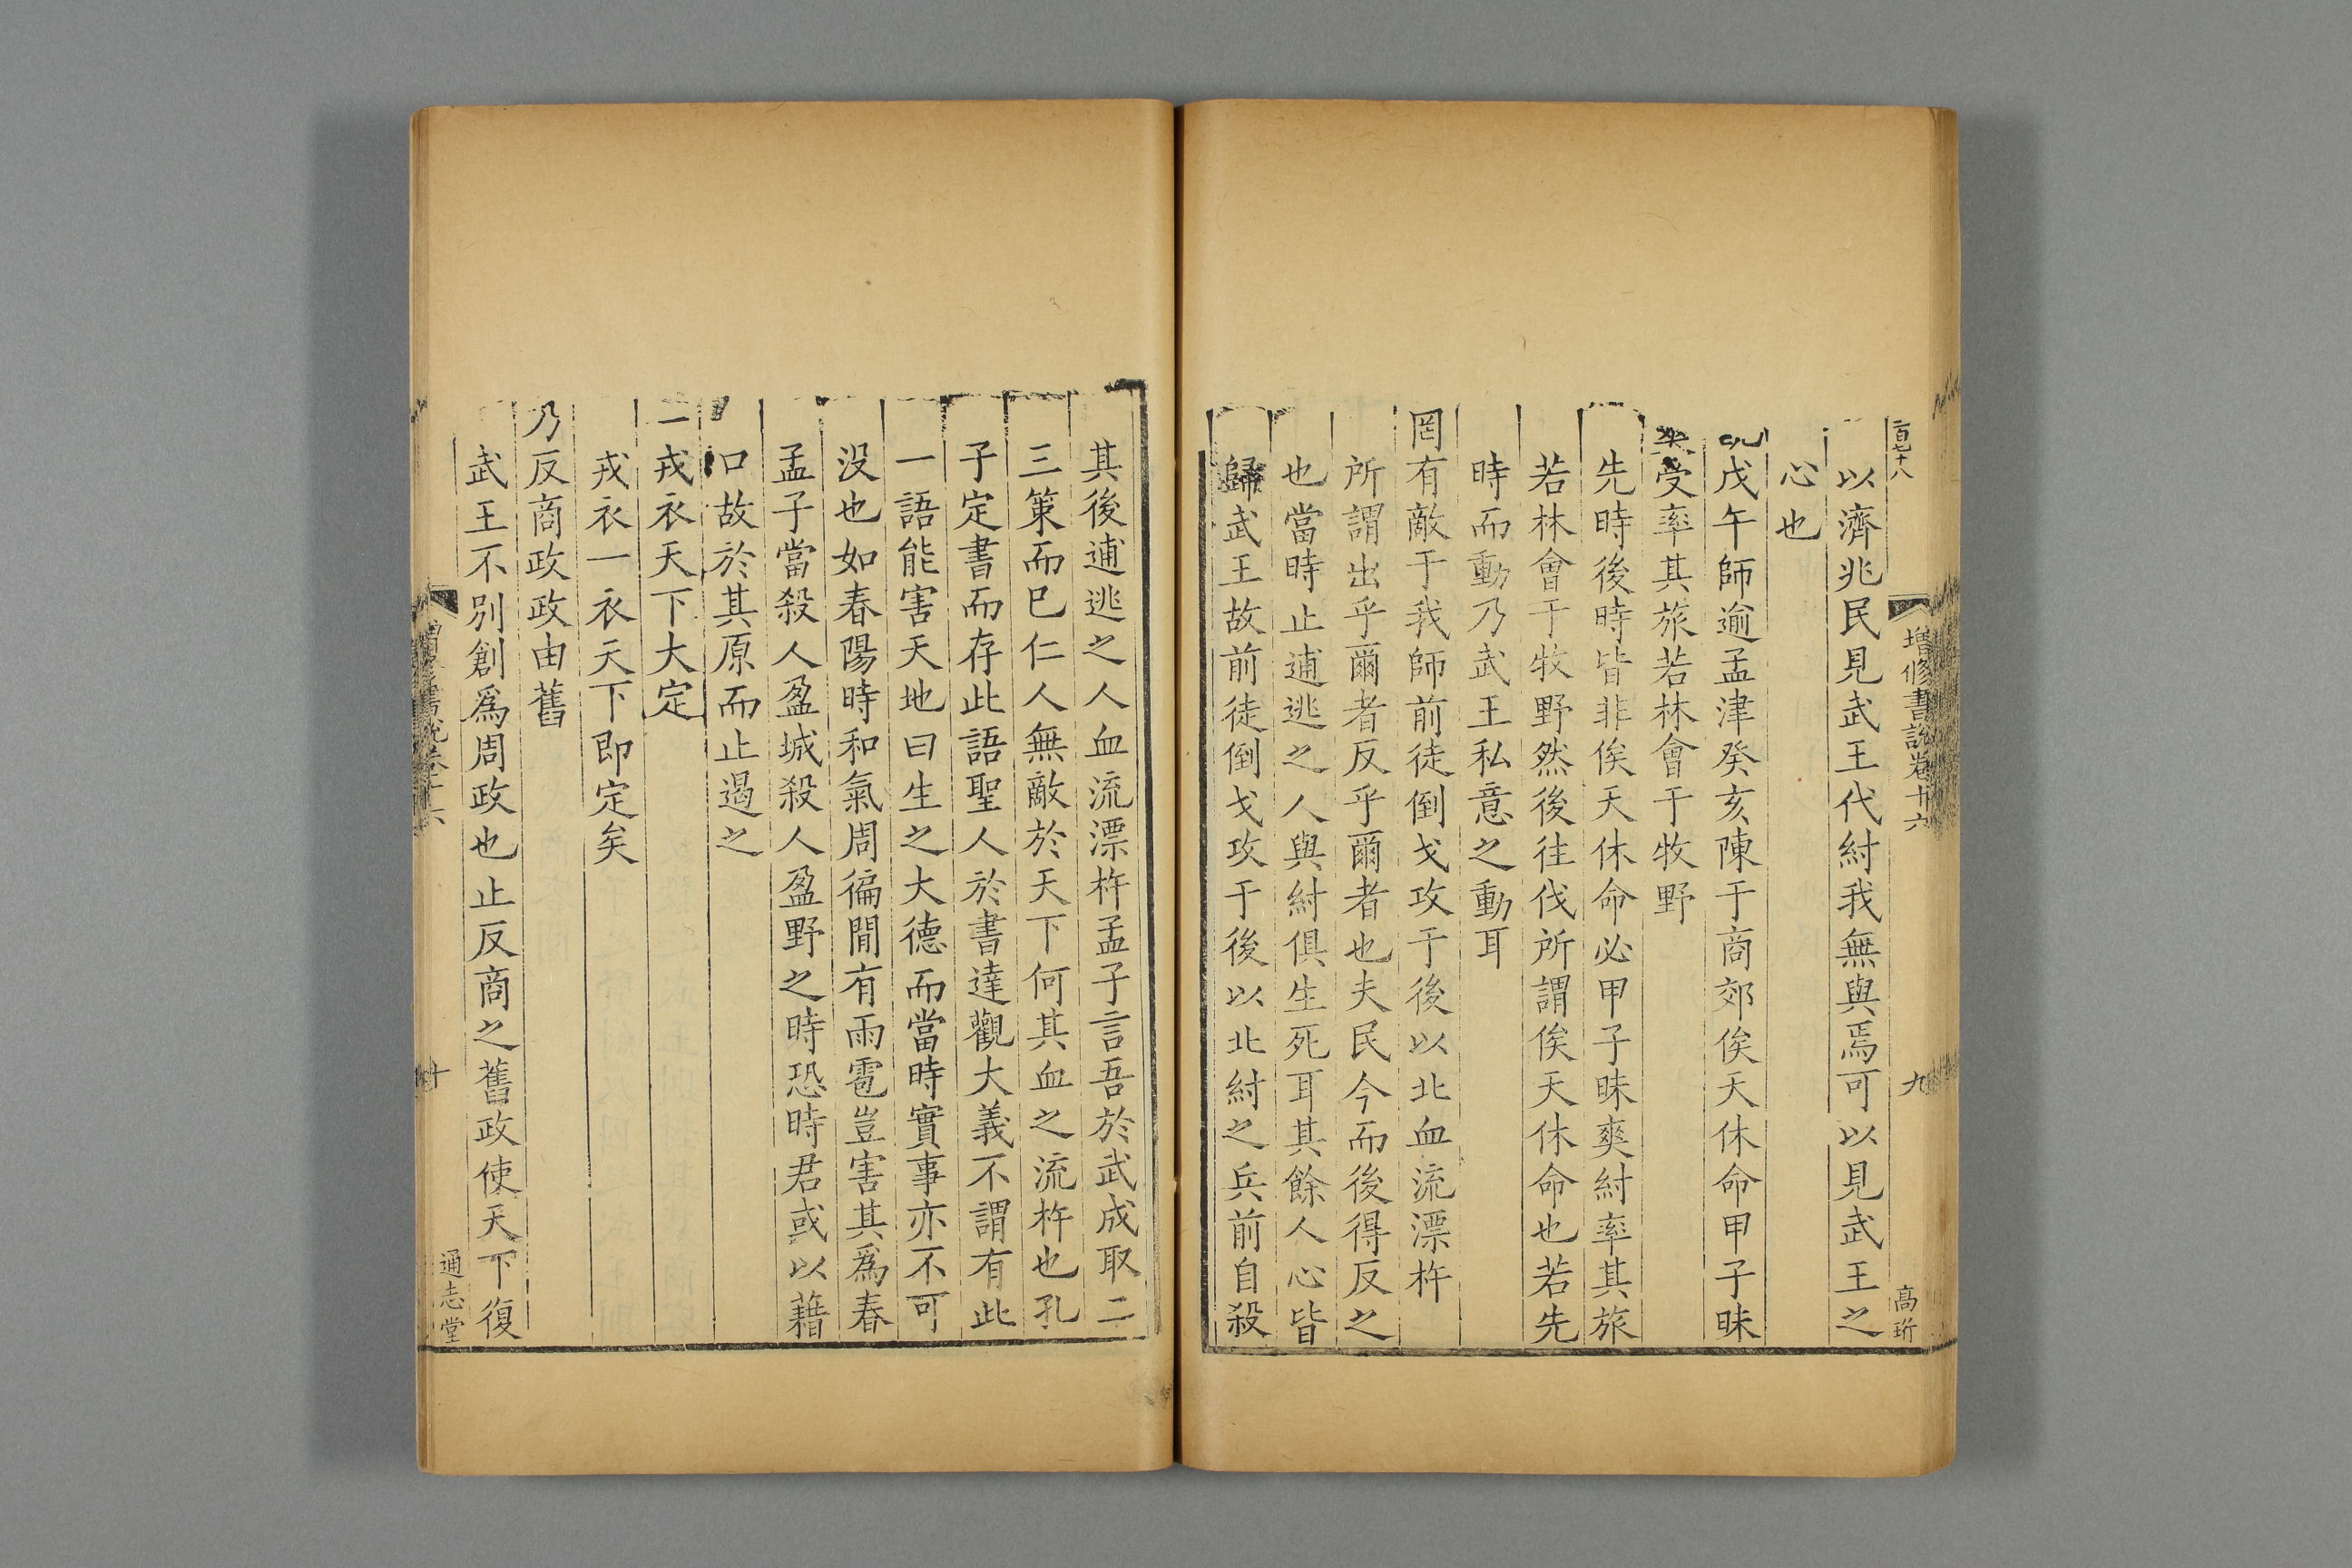 二百七十八
增修書說卷十六
九
高珩
以濟兆民見武王代紂我無與焉可以見武王之
心也
戊午師逾孟津癸亥陳于商郊俟天休命甲子昧
受率其旅若林會于牧野
先時後時皆非俟天休命必甲子昧爽紂率其旅
若林會于牧野然後往伐所謂俟天休命也若先
時而動乃武王私意之動耳
罔有敵于我師前徒倒戈攻于後以北血流漂杵
所謂出乎爾者反乎爾者也夫民今而後得反之
也當時止逋逃之人與紂俱生死耳其餘人心皆
歸武王故前徒倒戈攻于後以北紂之兵前自殺
其後逋逃之人血流漂杵孟子言吾於武成取二
三策而已仁人無敵於天下何其血之流杵也孔
子定書而存此語聖人於書達觀大義不謂有此
一語能害天地曰生之大德而當時實事亦不可
没也如春陽時和氣周徧閒有雨雹豈害其爲春
孟子當殺人盈城殺人盈野之時恐時君或以藉
口故於其原而止遏之
一戎衣天下大定
戎衣一衣天下即定矣
乃反商政政由舊
武王不別創爲周政也止反商之舊政使天下復
十
通志堂